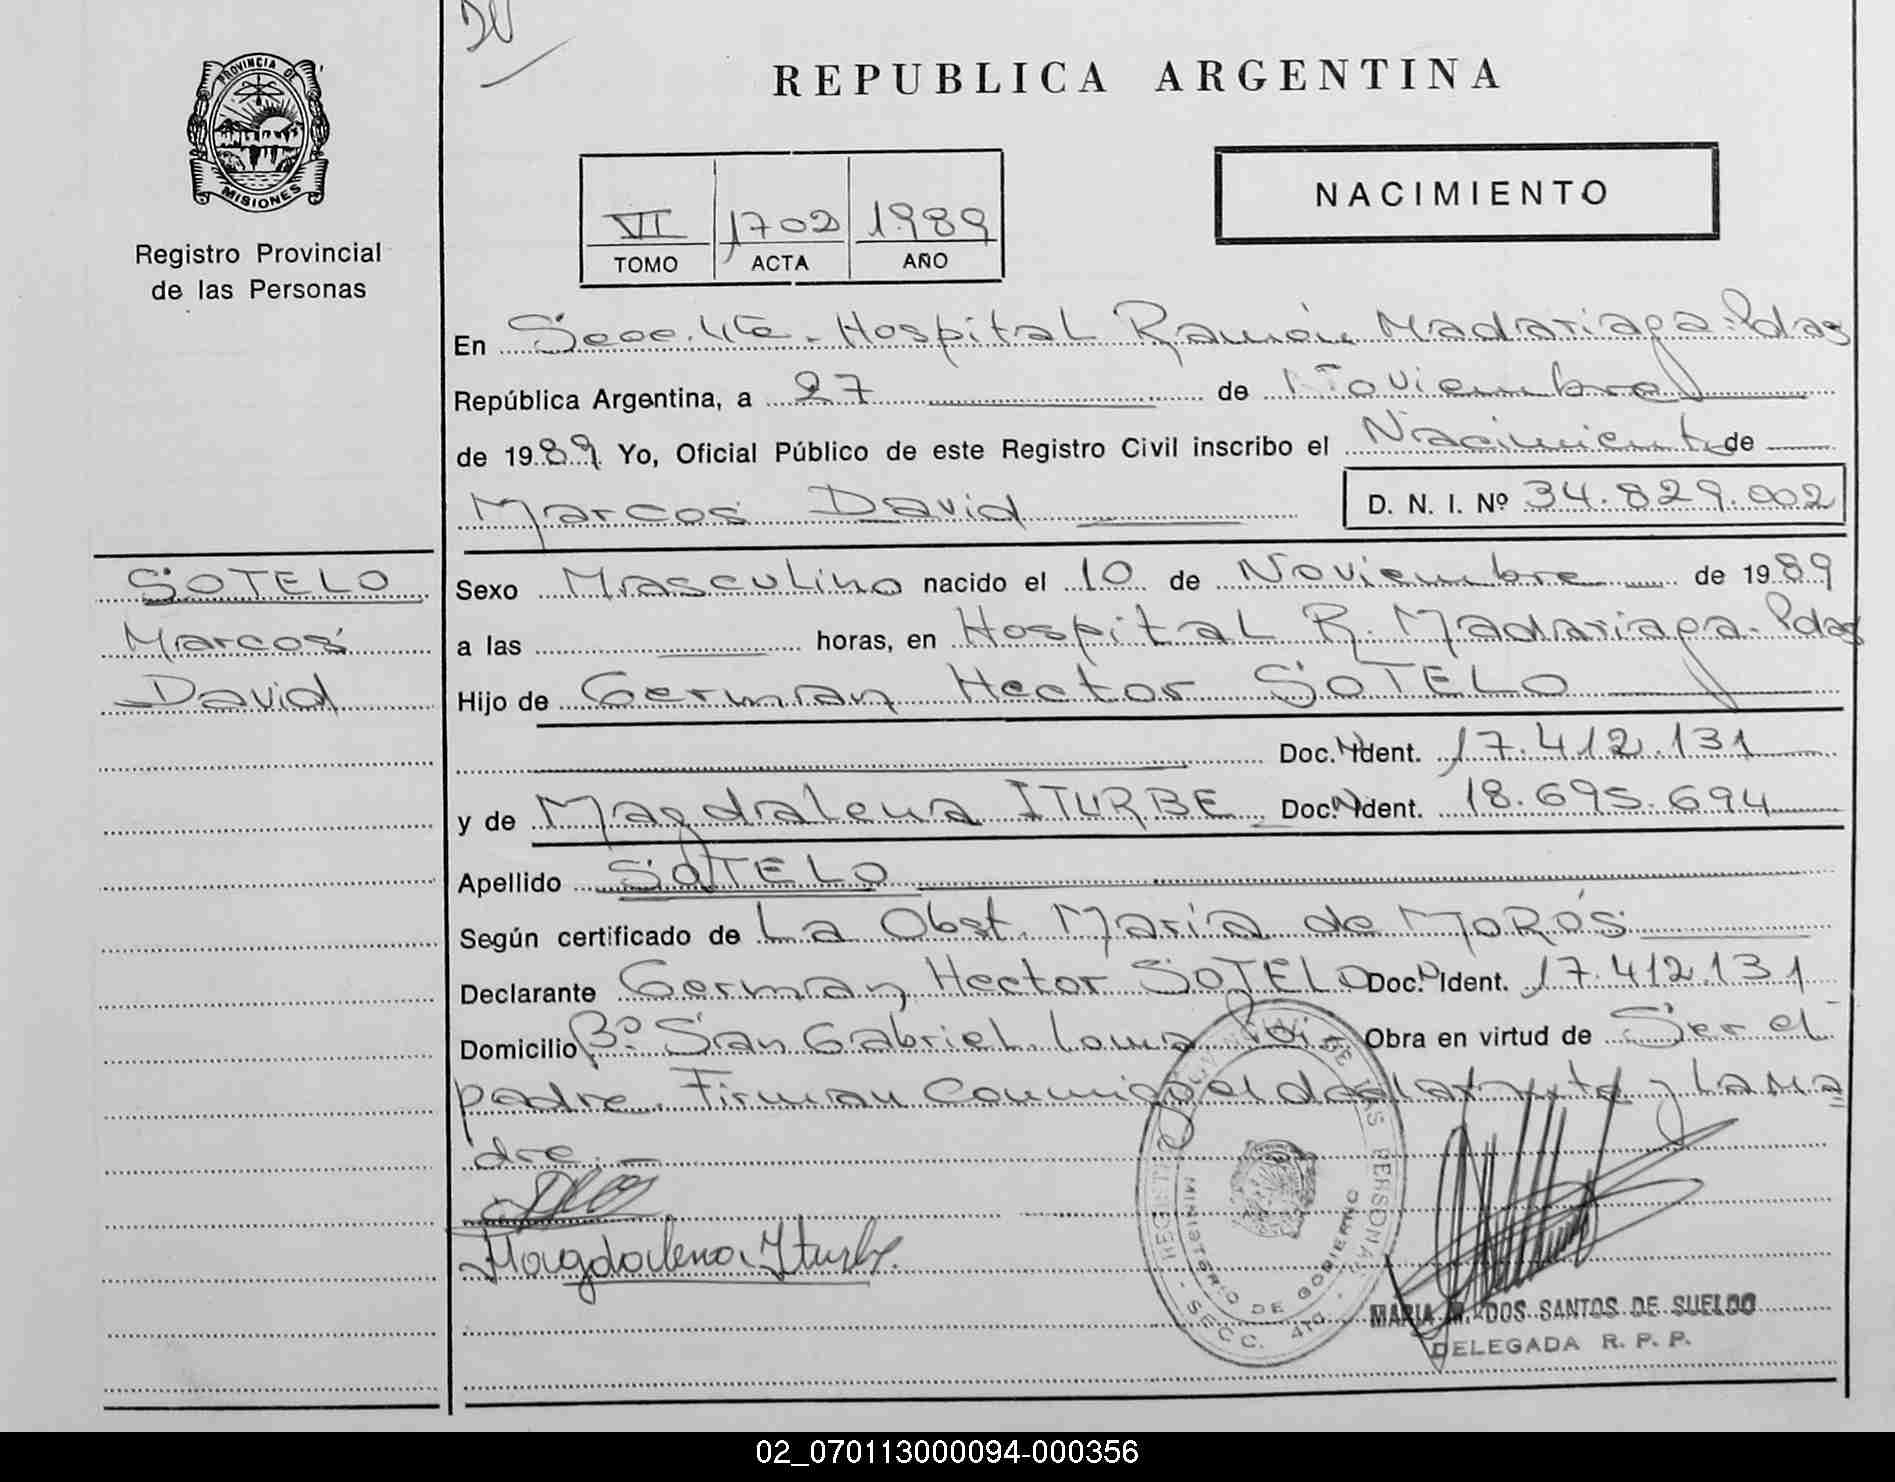 PROVINCIA DE
MISIONES
Registro Provincial
de las Personas
REPUBLICA ARGENTINA
NACIMIENTO
VI 1702 1989
TOMO ACTA AÑO
En Secc. 4ta. Hospital Ramón Madariaga - Pdas
República Argentina, a 27 de Noviembre
de 1989. Yo, Oficial Público de este Registro Civil inscribo el Nacimiento de
Marcos David
D. N. I. Nº 34.829.002
SOTELO
Marcos
David
Sexo Masculino nacido el 10 de Noviembre de 1989
a las horas, en Hospital R. Madariaga - Pdas
Hijo de German Hector SOTELO
Doc. Ident. 17.412.131
y de Magdalena ITURBE Doc. Ident. 18.695.694
Apellido SOTELO
Según certificado de La Obst. María de MORÓS
Declarante German Hector SOTELO Doc. Ident. 17.412.131
Domicilio Bº San Gabriel Loma Poi Obra en virtud de Ser el
padre. Firman Conmigo el declarante y La Ma
dre.-
Magdalena Iturbe.
REGISTRO PROVINCIAL DE LAS PERSONAS
MINISTERIO DE GOBIERNO
- SECC. 4ta. -
MARIA M. DOS SANTOS DE SUELDO
DELEGADA R. P. P.
02_070113000094-000356